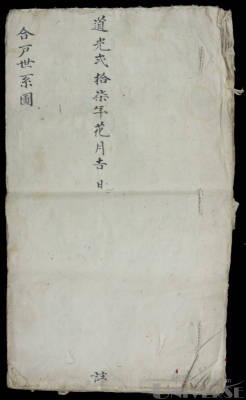 道光弐拾柒年花月吉日 註
合戶世系圖
UNIVERSE